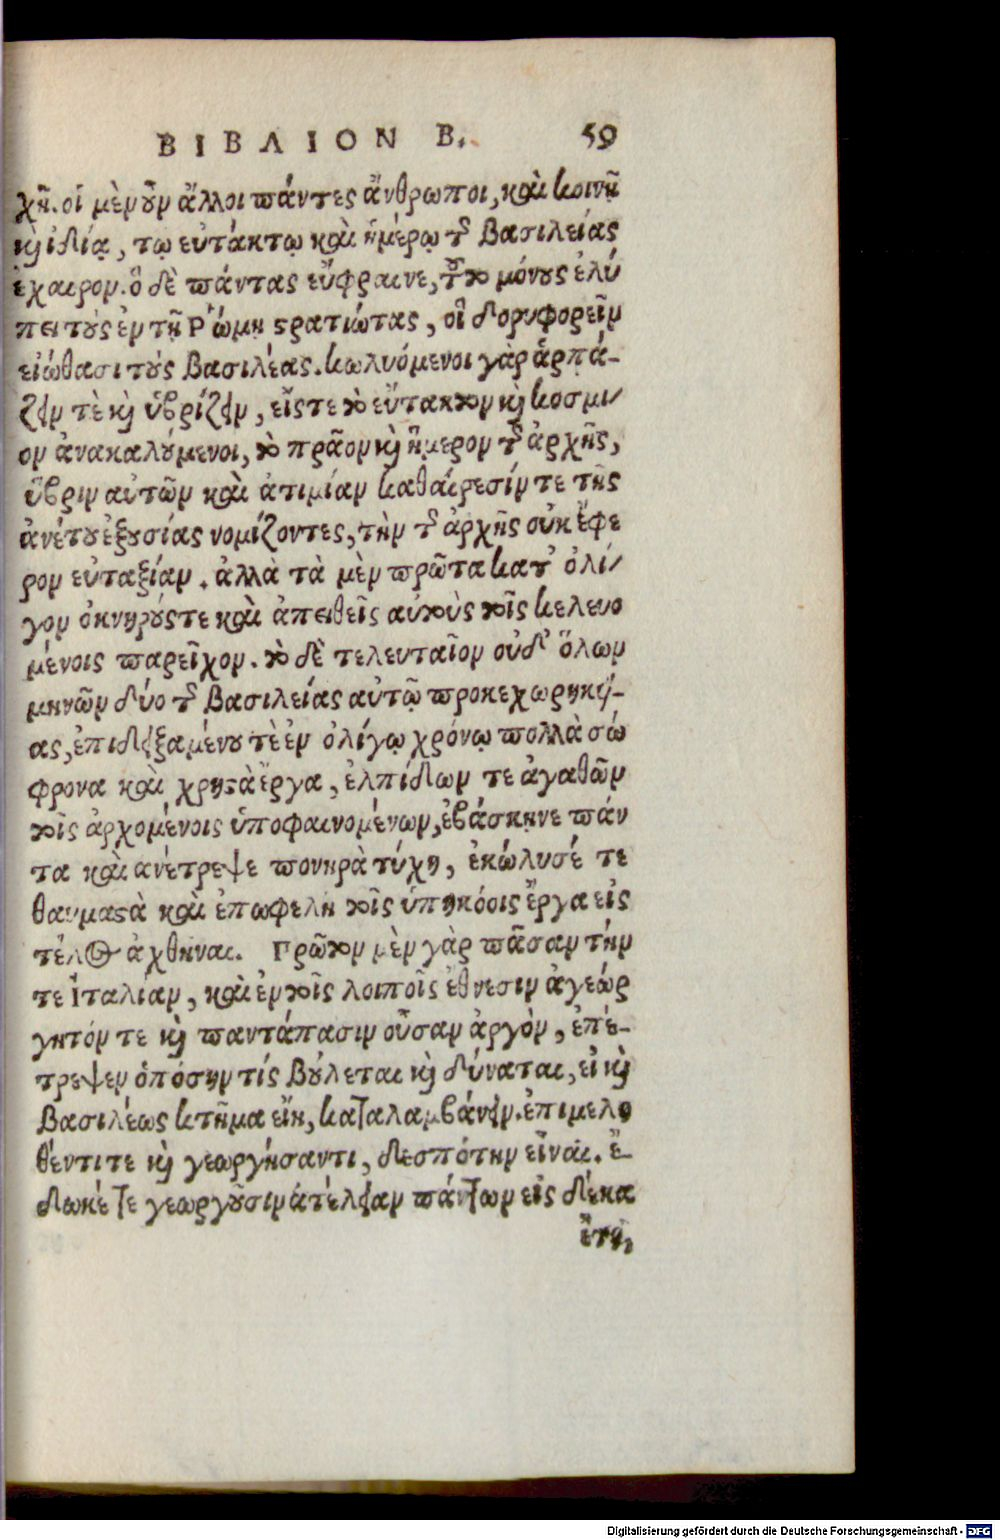 ΒΙΒΛΙΟΝ Β. 59
χῇ. οἱ μὲν οὖν ἄλλοι πάντες ἄνθρωποι, καὶ κοινῇ
καὶ ἰδίᾳ, τῳ εὐτάκτῳ καὶ ἡμέρῳ τῆς βασιλείας
ἐχαιρον. ὃ δὲ πάντας εὔφραινε, τοῦτο μόνους ἐλύ
πει τοὺς ἐν τῇ Ῥώμῃ στρατιώτας, οἳ δορυφορεῖν
εἰώθασι τοὺς βασιλέας. κωλυόμενοι γὰρ ἁρπά-
ζειν τὲ καὶ ὑβρίζειν, εἴς τε τὸ εὔτακτον καὶ κοσμι-
ον ἀνακαλούμενοι, τὸ πρᾶον καὶ ἥμερον τῆς ἀρχῆς,
ὕβριν αὐτῶν καὶ ἀτιμίαν καθαίρεσίν τε τῆς
ἀνέτου ἐξουσίας νομίζοντες, τὴν τῆς ἀρχῆς οὐκ ἔφε
ρον εὐταξίαν. ἀλλὰ τὰ μὲν πρῶτα κατ' ὀλί-
γον ὀκνηρούς τε καὶ ἀπειθεῖς αὑτοὺς τοῖς κελευο
μένοις παρεῖχον. τὸ δὲ τελευταῖον οὐδ' ὅλων
μηνῶν δύο τῆς βασιλείας αὐτῷ προκεχωρηκυί-
ας, ἐπιδειξαμένου τὲ ἐν ὀλίγῳ χρόνῳ πολλὰ σώ
φρονα καὶ χρηστὰ ἔργα, ἐλπίδων τε ἀγαθῶν
τοῖς ἀρχομένοις ὑποφαινομένων, ἐβάσκηνε πάν
τα καὶ ἀνέτρεψε πονηρὰ τύχη, ἐκώλυσέ τε
θαυμαστὰ καὶ ἐπωφελῆ τοῖς ὑπηκόοις ἔργα εἰς
τέλος ἀχθῆναι. Πρῶτον μὲν γὰρ πᾶσαν τήν
τε Ἰταλίαν, καὶ ἐν τοῖς λοιποῖς ἔθνεσιν ἀγεώρ
γητόν τε καὶ παντάπασιν οὖσαν ἀργὸν, ἐπέ-
τρεψεν ὁπόσην τίς βούλεται καὶ δύναται, εἰ καὶ
βασιλέως κτῆμα εἴη, καταλαμβάνειν. ἐπιμελη
θέντι τε καὶ γεωργήσαντι, δεσπότην εἶναι. ἔ-
δωκέ τε γεωργοῦσιν ἀτέλειαν πάντων εἰς δέκα
ἔτη,
Digitalisierung gefördert durch die Deutsche Forschungsgemeinschaft - DFG